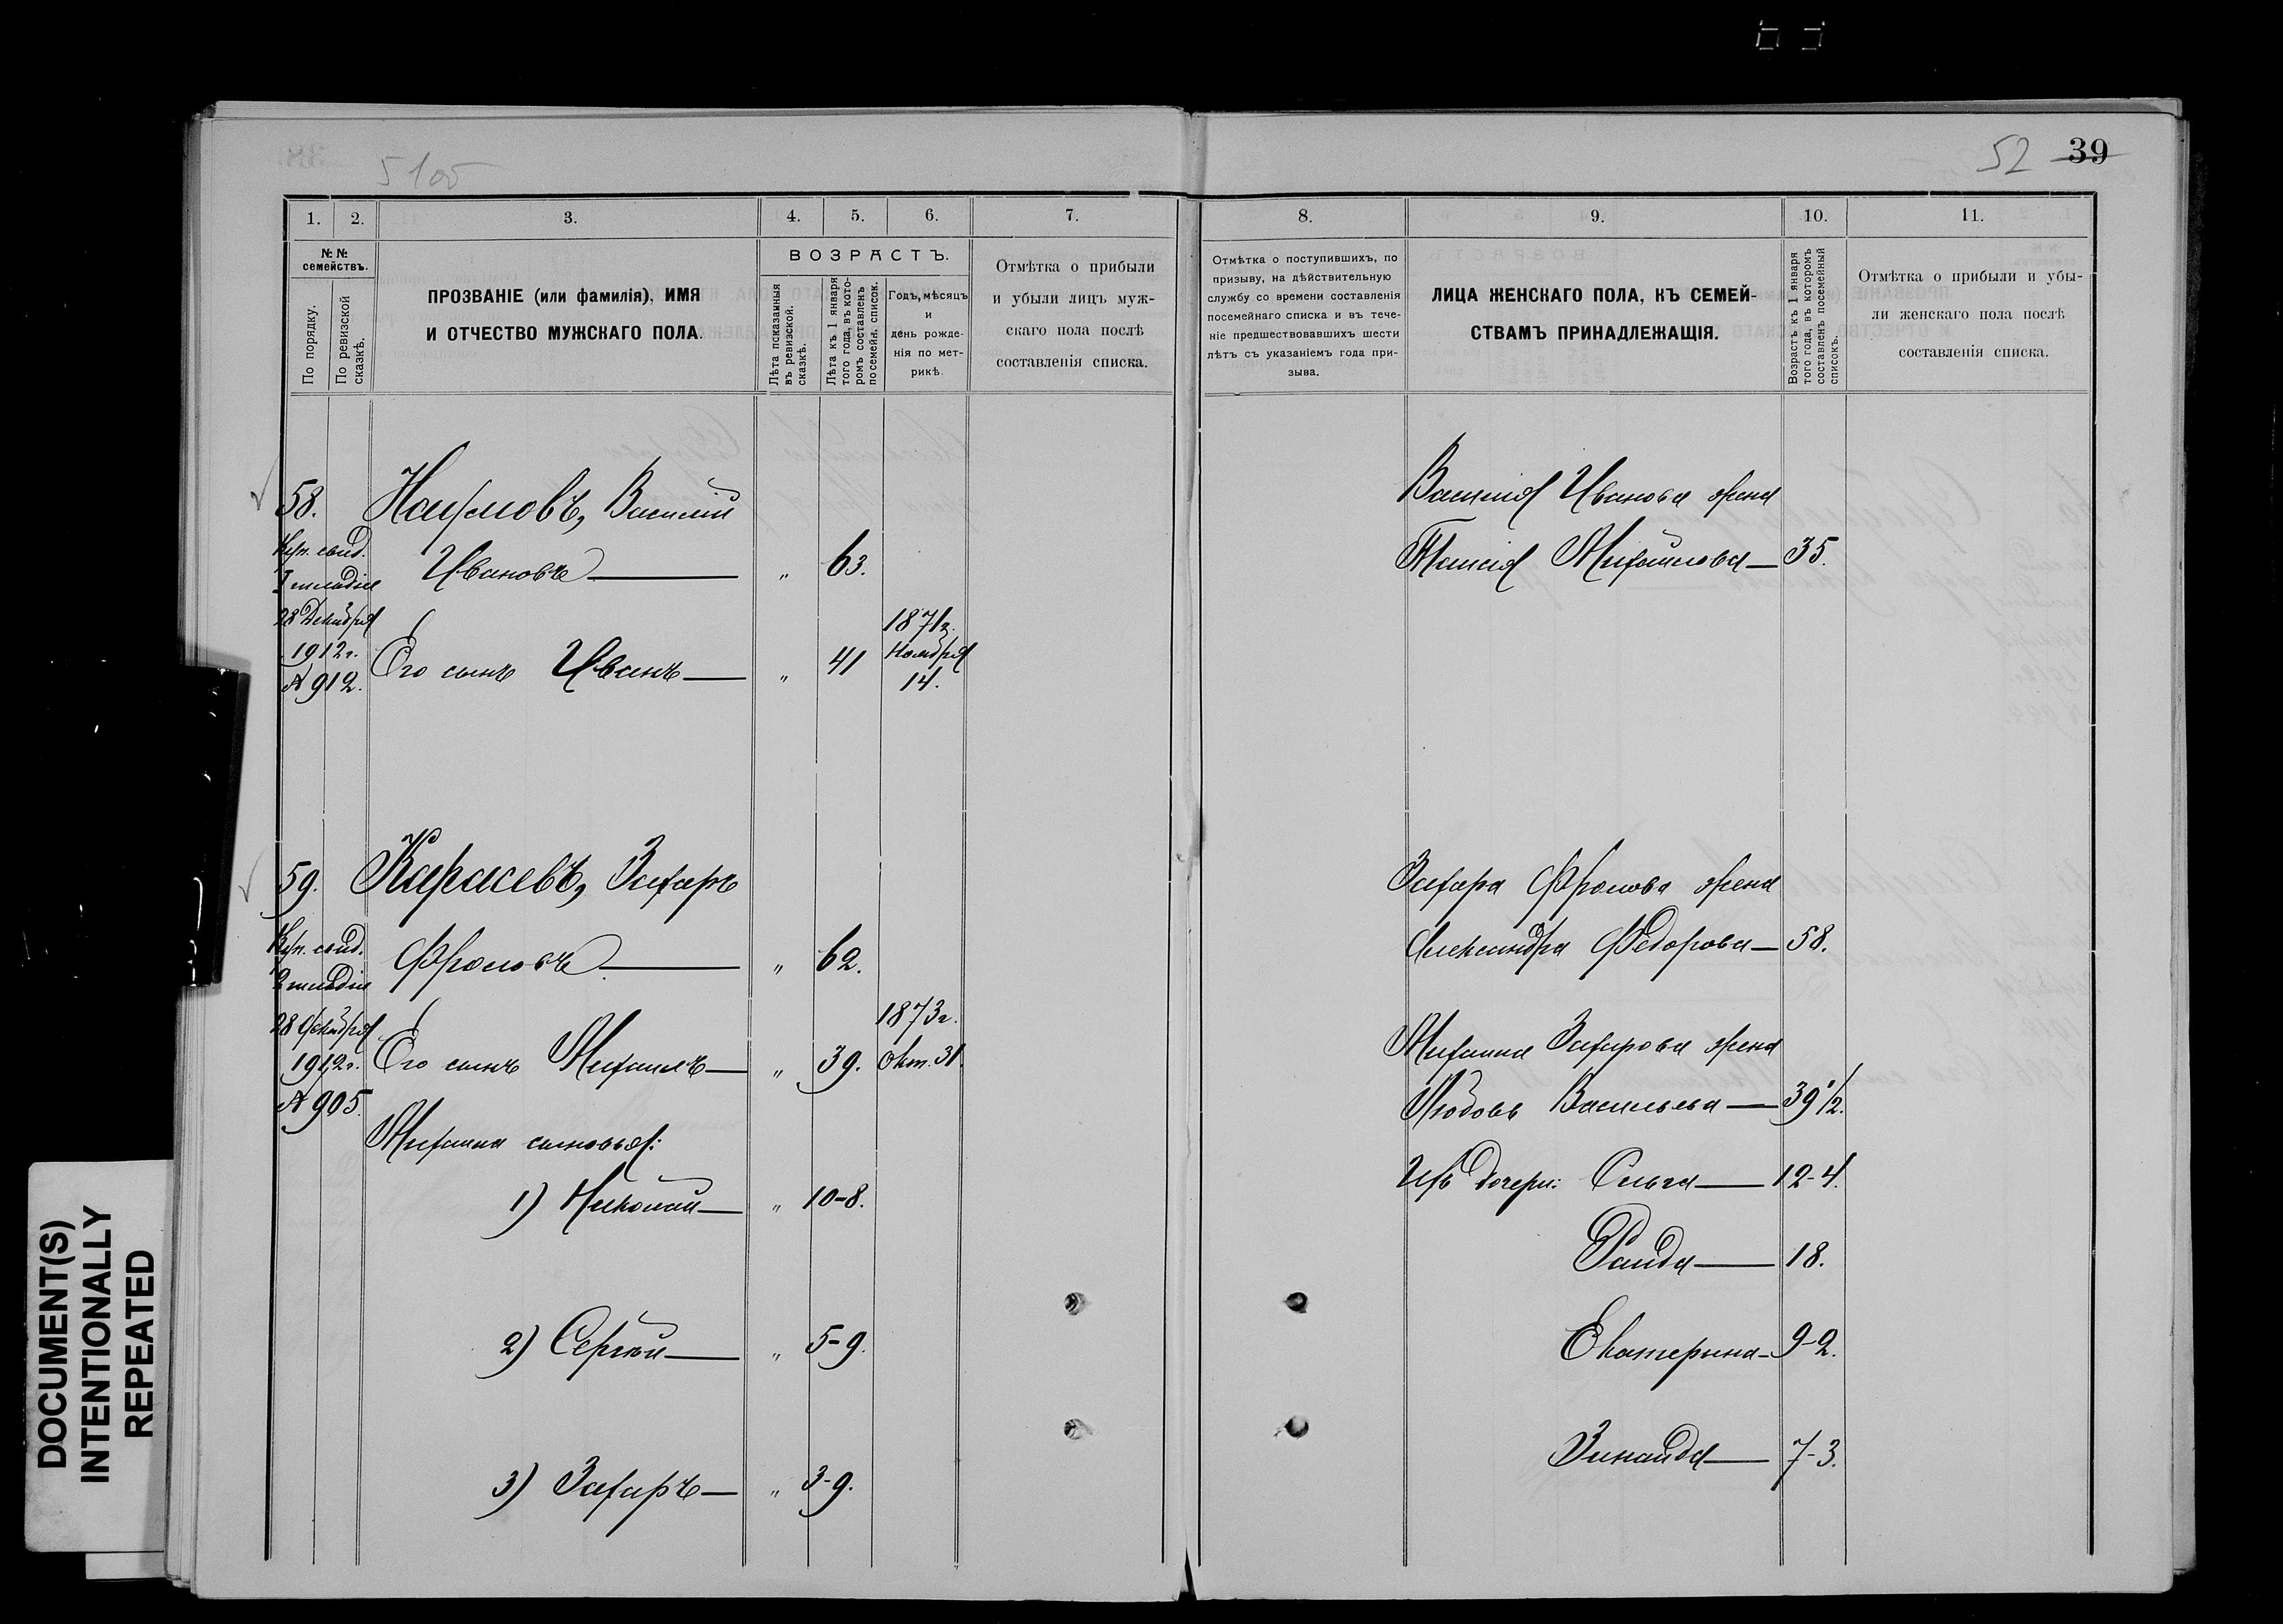 52 39
51об
1. 2. 3. 4. 5. 6. 7.
№ № семействъ.
По порядку.
По ревизской сказкѣ.
ПРОЗВАНІЕ (или фамилія), ИМЯ
И ОТЧЕСТВО МУЖСКАГО ПОЛА.
ВОЗРАСТЪ.
Лѣта показанныя въ ревизской сказкѣ.
Лѣта къ 1 января того года, въ которомъ составленъ посемейн. список.
Годъ, мѣсяцъ
и
день рожде-
нія по мет-
рикѣ.
Отмѣтка о прибыли
и убыли лицъ муж-
скаго пола послѣ
составленія списка.
58. Наумовъ, Василій
Куп. свид.
I гильдіи
Ивановъ — „ 63.
28 Декабря
1912 г.
№ 912.
Его сынъ Иванъ — „ 41
1871 г.
Ноября
14.
59. Карасевъ, Захаръ
Куп. свид.
2 гильдіи
Фроловъ — „ 62.
28 Декабря
1912 г.
№ 905.
Его сынъ Михаилъ — „ 39.
1873 г.
Окт. 31.
Михаила сыновья:
1) Николай — „ 10-8.
2) Сергѣй — „ 5-9.
3) Захаръ — „ 3-9.
8. 9. 10. 11.
Отмѣтка о поступившихъ, по
призыву, на дѣйствительную
службу со времени составленія
посемейнаго списка и въ тече-
ніе предшествовавшихъ шести
лѣтъ съ указаніемъ года при-
зыва.
ЛИЦА ЖЕНСКАГО ПОЛА, КЪ СЕМЕЙ-
СТВАМЪ ПРИНАДЛЕЖАЩІЯ.
Возрастъ къ 1 января того года, въ которомъ составленъ посемейный списокъ.
Отмѣтка о прибыли и убы-
ли женскаго пола послѣ
составленія списка.
Василія Иванова жена
Таисія Михайлова — 35.
Захара Фролова жена
Александра Ѳедорова — 58.
Михаила Захарова жена
Любовь Васильева — 39 1/2.
Ихъ дочери: Ольга — 12-4.
Раида — 18.
Екатерина — 9-2.
Зинаида — 7-3.
DOCUMENT(S)
INTENTIONALLY
REPEATED